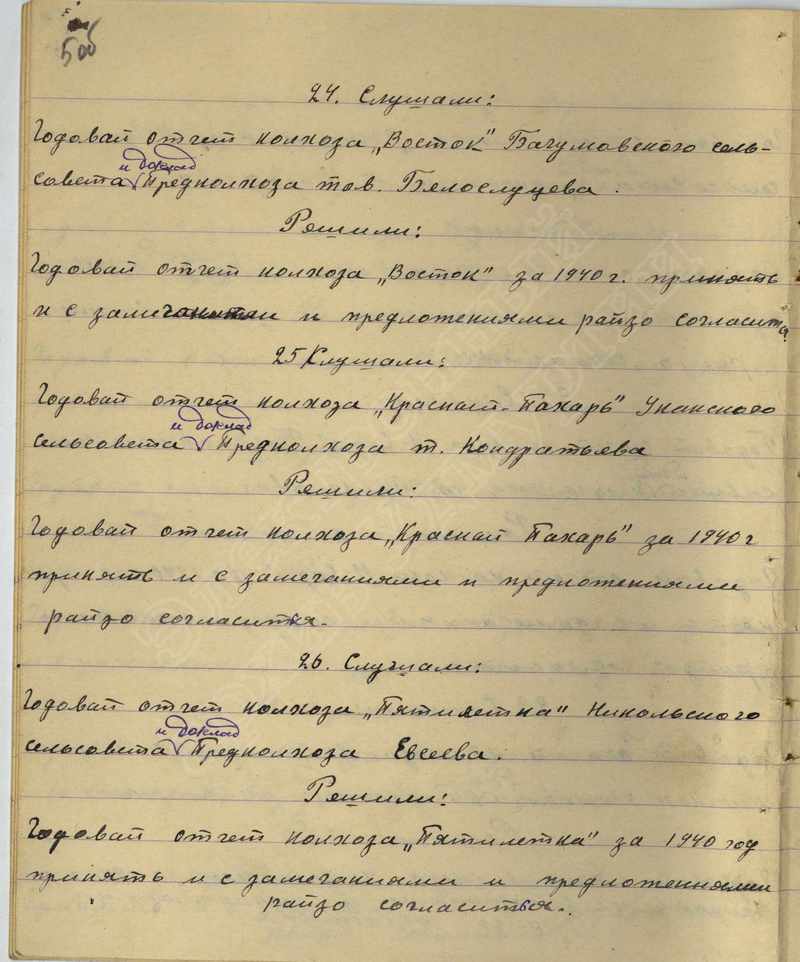 50об
24. Слушали:
Годовай отчет колхоза „Восток" Багумовского сель-
и доклад
совета Предколхоза тов. Бялослуцева.
Ряшили:
Годовай отчет колхоза „Восток" за 1940 г. принять
и с и предложениями райзо согласится
25 Слушали:
Годовай отчет колхоза „Краснай-Пахарь" Уканского
и доклад
сельсовета Предколхоза т. Кондратьева
Ряшили:
Годовай отчет колхоза „Краснай Пахарь" за 1940 г
принять и с замечаниями и предложениями
райзо согласится.
26. Слушали:
Годовай отчет колхоза „Пятилетка" Никольского
и доклад
сельсовета Предколхоза Евсеева.
Ряшили:
Годовай отчет колхоза „Пятилетка" за 1940 год
принять и с замечаниями и предложениями
райзо согласится.